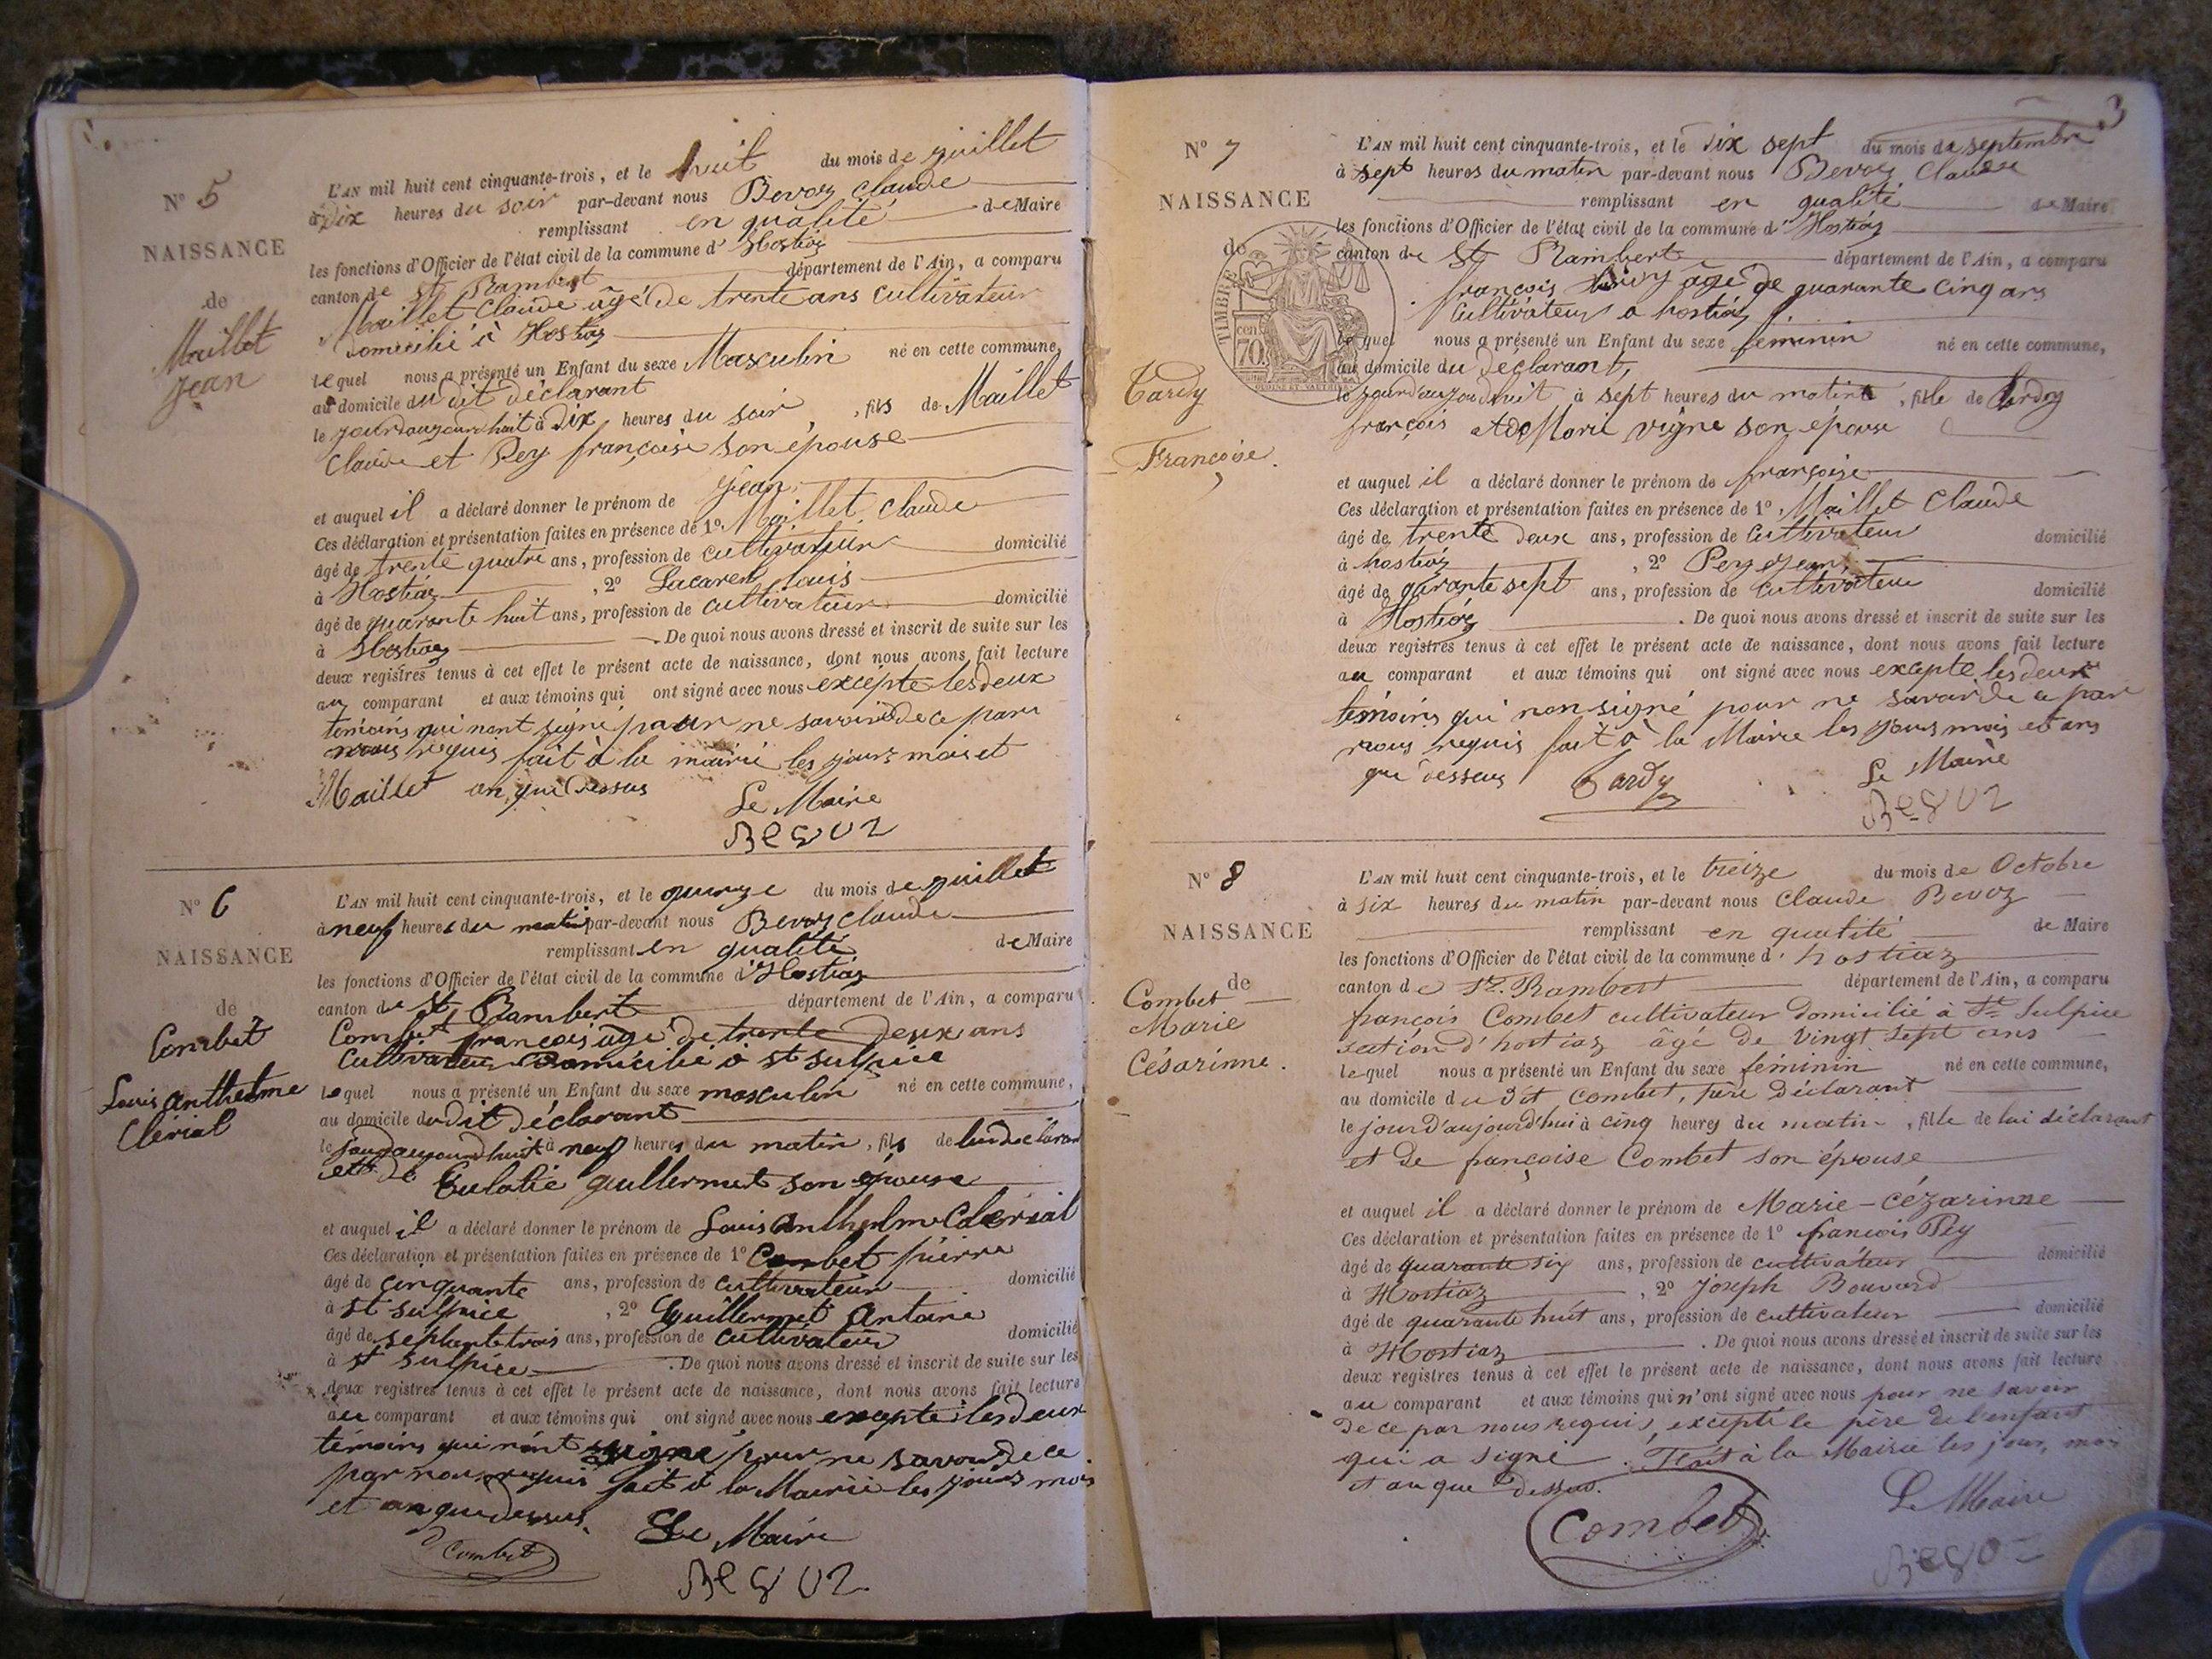 N° 5
NAISSANCE
de
Maillet
Jean
L'AN mil huit cent cinquante-trois, et le huit du mois de juillet
à Dix heures du soir par-devant nous Bevoz Claude
remplissant en qualité de Maire
les fonctions d'Officier de l'état civil de la commune d'Hostiaz
canton de St Rambert département de l'Ain, a comparu
Maillet Claude âgé de trente ans cultivateur
domicilié à Hostiaz
lequel nous a présenté un Enfant du sexe Masculin né en cette commune,
au domicile du dit déclarant
le jourdaujourdhuit à Dix heures du soir, fils de Maillet
Claude et Pey françoise son épouse
et auquel il a déclaré donner le prénom de Jean
Ces déclaration et présentation faites en présence de 1° Maillet Claude
âgé de trente quatre ans, profession de cultivateur domicilié
à Hostiaz, 2° Louis
âgé de quarante huit ans, profession de cultivateur domicilié
à Hostiaz. De quoi nous avons dressé et inscrit de suite sur les
deux registres tenus à cet effet le présent acte de naissance, dont nous avons fait lecture
au comparant et aux témoins qui ont signé avec nous excepte les deux
témoins qui nont signé pour ne savoir de ce par
nous requis fait à la mairie les jours mois et
Maillet an que dessus
Le Maire
Bevoz
N° 6
NAISSANCE
de
Combet
Louis Anthelme
Clérial
L'AN mil huit cent cinquante-trois, et le quinze du mois de juillet
à neuf heures du matin par-devant nous Bevoz Claude
remplissant en qualité de Maire
les fonctions d'Officier de l'état civil de la commune d'Hostiaz
canton de St Rambert département de l'Ain, a comparu
Combet françois âgé de trente deux ans
Cultivateur Domicilié à St Sulpice
lequel nous a présenté un Enfant du sexe masculin né en cette commune,
au domicile du dit déclarant
le jourdaujourdhuit à neuf heures du matin, fils de lui déclarant
et de Eulalie guillermet son épouse
et auquel il a déclaré donner le prénom de Louis Anthelme Clérial
Ces déclaration et présentation faites en présence de 1° Combet pierre
âgé de cinquante ans, profession de cultivateur domicilié
à St Sulpice, 2° Guillermet Antoine
âgé de septante trois ans, profession de cultivateur domicilié
à St Sulpice. De quoi nous avons dressé et inscrit de suite sur les
deux registres tenus à cet effet le présent acte de naissance, dont nous avons fait lecture
au comparant et aux témoins qui ont signé avec nous excepté les deux
témoins qui nont signé pour ne savoir de ce
par nous requis fait à la Mairie les jours mois
et an que dessus.
Combet
Le Maire
Bevoz
3
N° 7
NAISSANCE
de
TIMBRE
70 cen
Tardy
Françoise.
L'AN mil huit cent cinquante-trois, et le dix sept du mois de septembre
à sept heures du matin par-devant nous Bevoz Claude
remplissant en qualité de Maire
les fonctions d'Officier de l'état civil de la commune d'Hostiaz
canton de St Rambert département de l'Ain, a comparu
françois tardy âgé de quarante cinq ans
Cultivateur a hostiaz
lequel nous a présenté un Enfant du sexe feminin né en cette commune,
au domicile du déclarant,
le jourdaujourdhuit à sept heures du matin, fille de tardy
françois et de Marie vigne son épouse
et auquel il a déclaré donner le prénom de françoise
Ces déclaration et présentation faites en présence de 1° Maillet Claude
âgé de trente deux ans, profession de Cultivateur domicilié
à hostiaz, 2° Pey Jean,
âgé de quarante sept ans, profession de Cultivateur domicilié
à Hostiaz. De quoi nous avons dressé et inscrit de suite sur les
deux registres tenus à cet effet le présent acte de naissance, dont nous avons fait lecture
au comparant et aux témoins qui ont signé avec nous excepte les deux
témoins qui non signé pour ne savoir de ce par
nous requis fait à la Mairie les jours mois et ans
que dessus
Tardy
Le Maire
Bevoz
N° 8
NAISSANCE
de
Combet
Marie
Césarinne.
L'AN mil huit cent cinquante-trois, et le treize du mois de Octobre
à six heures du matin par-devant nous Claude Bevoz
remplissant en qualité de Maire
les fonctions d'Officier de l'état civil de la commune d'hostiaz
canton de St. Rambert département de l'Ain, a comparu
françois Combet cultivateur domicilié à St Sulpice
section d'hostiaz âgé de vingt sept ans
lequel nous a présenté un Enfant du sexe féminin né en cette commune,
au domicile du dit Combet, père déclarant
le jour d'aujourd'hui à cinq heures du matin, fille de lui déclarant
et de françoise Combet son épouse
et auquel il a déclaré donner le prénom de Marie-Cézarinne
Ces déclaration et présentation faites en présence de 1° francois Pey
âgé de quarante six ans, profession de cultivateur domicilié
à Hostiaz, 2° Joseph Bouvard
âgé de quarante huit ans, profession de cultivateur domicilié
à Hostiaz. De quoi nous avons dressé et inscrit de suite sur les
deux registres tenus à cet effet le présent acte de naissance, dont nous avons fait lecture
au comparant et aux témoins qui n'ont signé avec nous pour ne savoir
de ce par nous requis, excepté le père de l'enfant
qui a signé. Fait à la Mairie les jour, mois
et an que dessus.
Combet
Le Maire
Bevoz